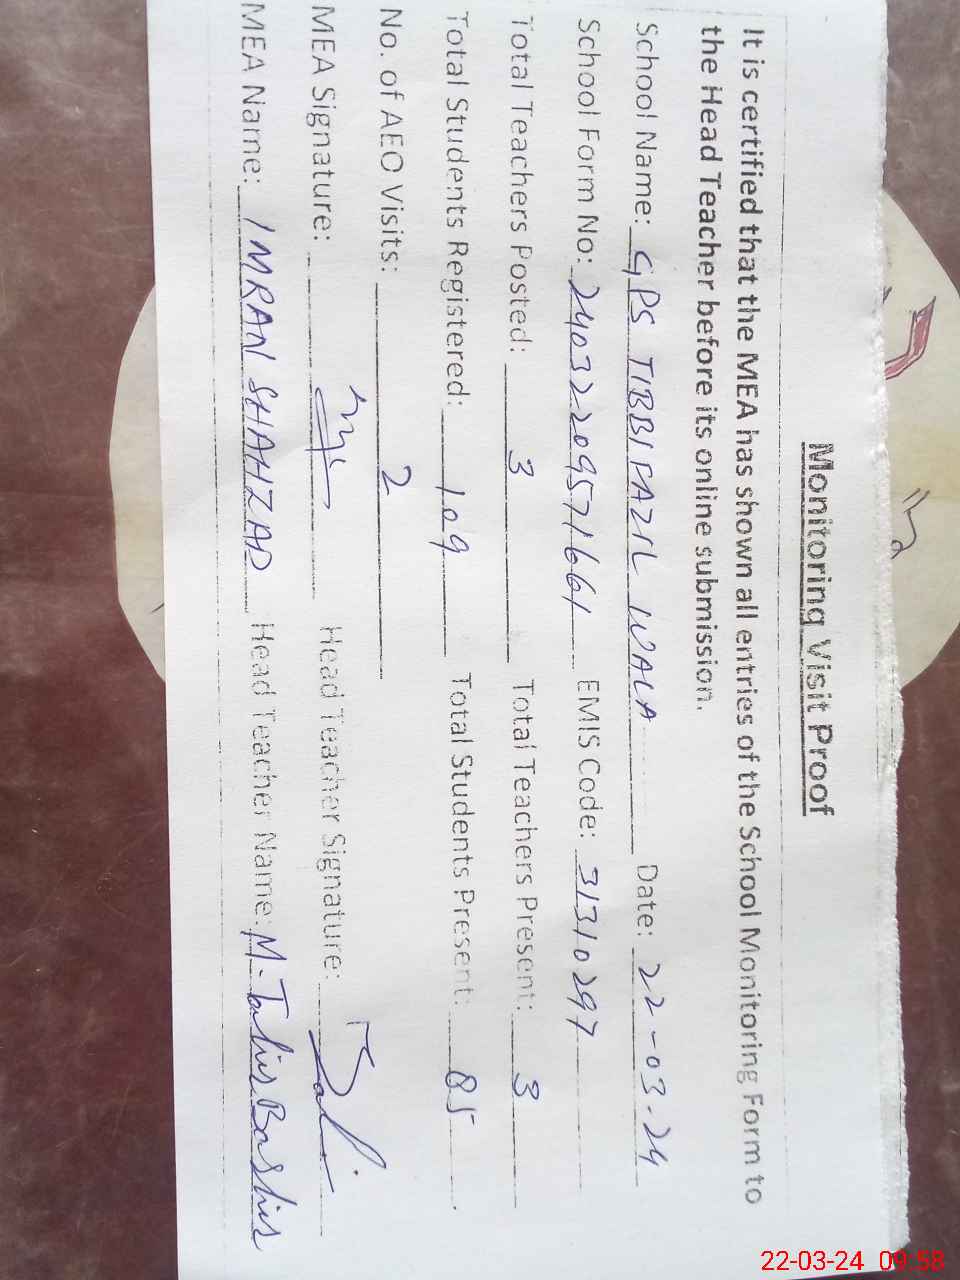 Monitoring Visit Proof
It is certified that the MEA has shown all entries of the School Monitoring Form to
the Head Teacher before its online submission.
School Name: GPS TIBBI FAZIL WALA Date: 22-03-24
School Form No: 240322095716661 EMIS Code: 31310297
Total Teachers Posted: 3 Total Teachers Present: 3
Total Students Registered: 109 Total Students Present: 85
No. of AEO Visits: 2
MEA Signature: Head Teacher Signature:
MEA Name: IMRAN SHAHZAD Head Teacher Name: M-Tahir Bashir
22-03-24 09:58